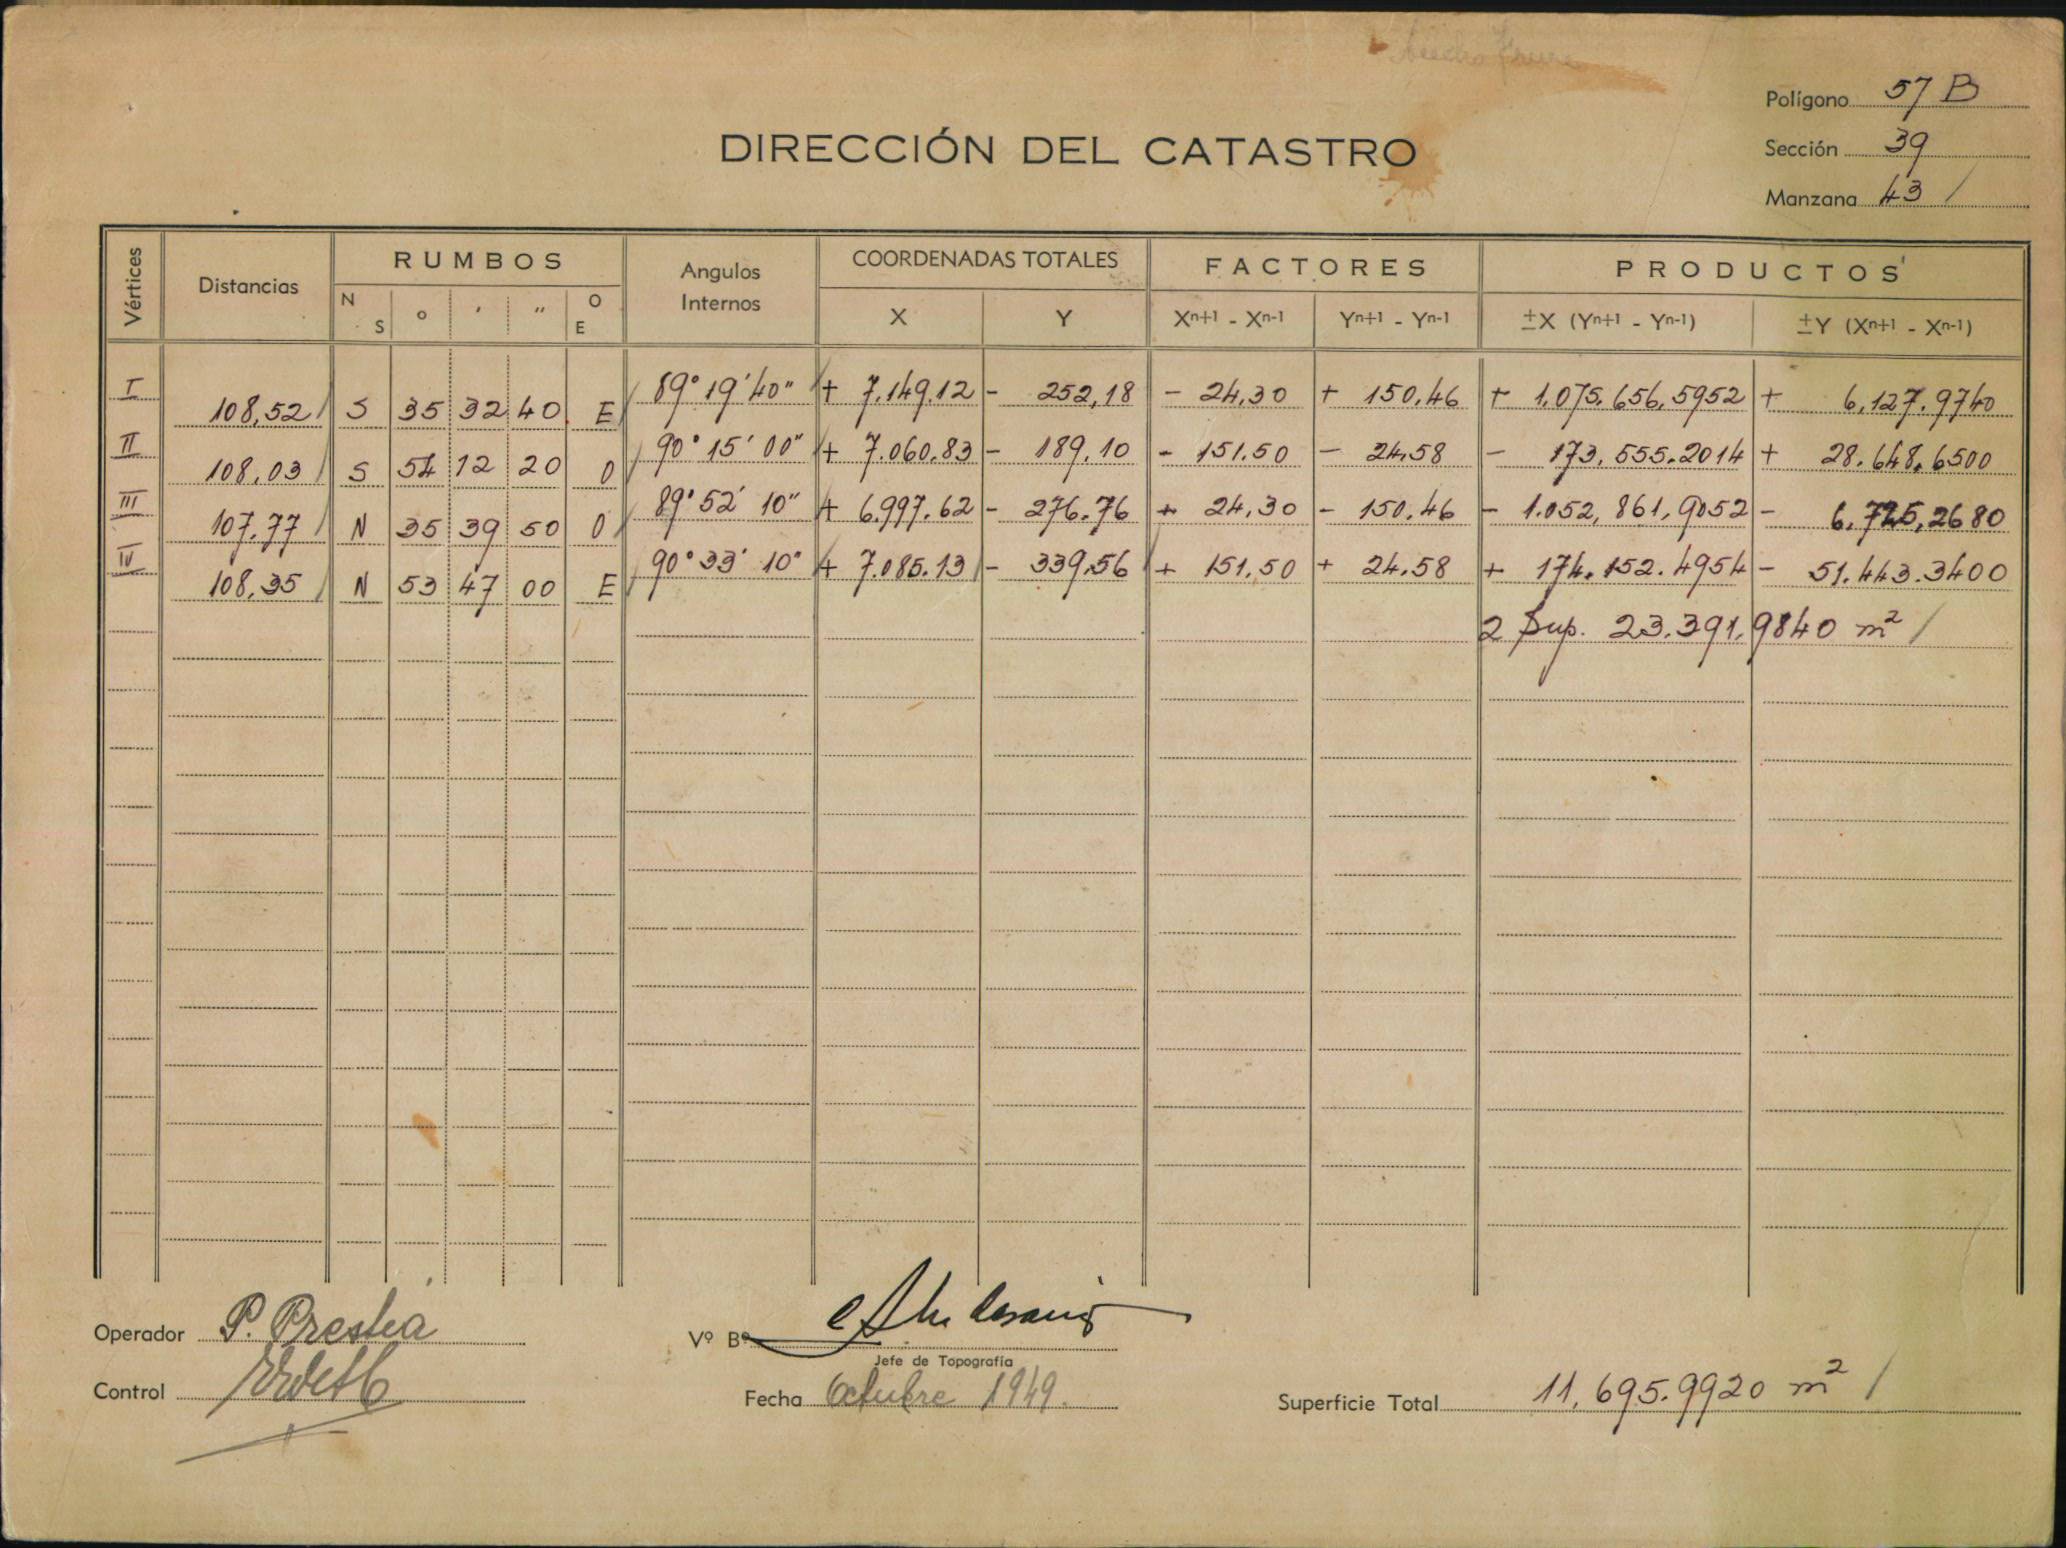 Polígono 57 B
Sección 39
Manzana 43 /
DIRECCIÓN DEL CATASTRO
Vértices Distancias RUMBOS Angulos Internos COORDENADAS TOTALES FACTORES PRODUCTOS
N S ° ' " O E X Y Xn+1 - Xn-1 Yn+1 - Yn-1 ±X (Yn+1 - Yn-1) ±Y (Xn+1 - Xn-1)
I 108,52 / S 35 32 40 E / 89° 19' 40" + 7.149.12 - 252,18 - 24,30 + 150,46 + 1.075.656,5952 + 6,127.9740
II 108,03 / S 54 12 20 O / 90° 15' 00" + 7.060.83 - 189.10 - 151.50 - 24,58 - 173,555.2014 + 28.648.6500
III 107.77 / N 35 39 50 O / 89° 52' 10" + 6.997.62 - 276.76 + 24,30 - 150.46 - 1.052,861,9052 - 6.725,2680
IV 108,35 / N 53 47 00 E / 90° 33' 10" + 7.085.13 - 339.56 + 151,50 + 24.58 + 174.152.4954 - 51.443.3400
2 Sup. 23.391,9840 m² /
Operador P. Prestia
Vº Bº
Jefe de Topografía
Control
Fecha Octubre 1949.
Superficie Total 11,695.9920 m² /